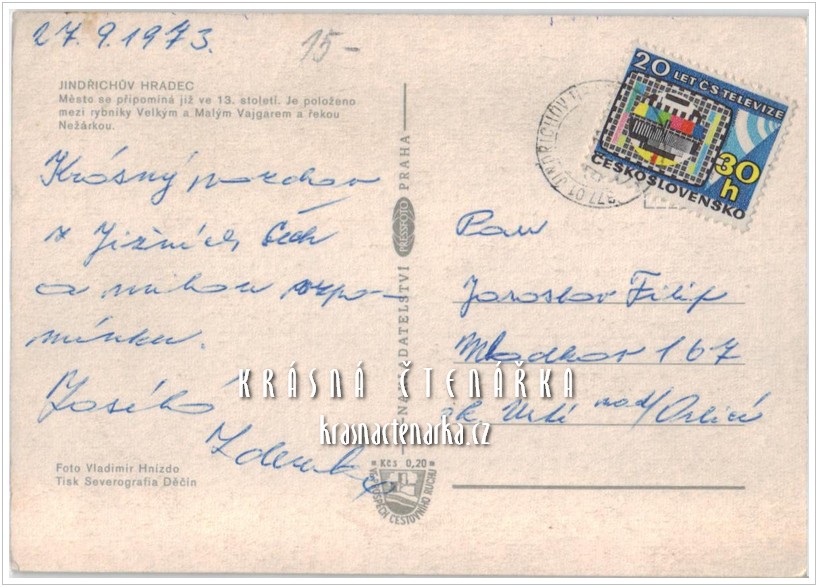 27.9.1973.
15-
JINDŘICHŮV HRADEC
Město se připomíná již ve 13. století. Je položeno
mezi rybníky Velkým a Malým Vajgarem a řekou
Nežárkou.
Krásný pozdrav
z Jižních Čech
a milou vzpo-
mínku.
Zdeněk
Foto Vladimír Hnízdo
Tisk Severografia Děčín
NAKLADATELSTVÍ PRESSFOTO PRAHA
Kčs 0,20
VE PROSPĚCH CESTOVNÍHO RUCHU
20 LET ČS TELEVIZE
30 h
ČESKOSLOVENSKO
377 01 JINDŘICHŮV
Pan
Jaroslav Filip
Mladkov 167
ok. Ústí nad/Orlicí
KRÁSNÁ ČTENÁŘKA
krasnactenarka.cz